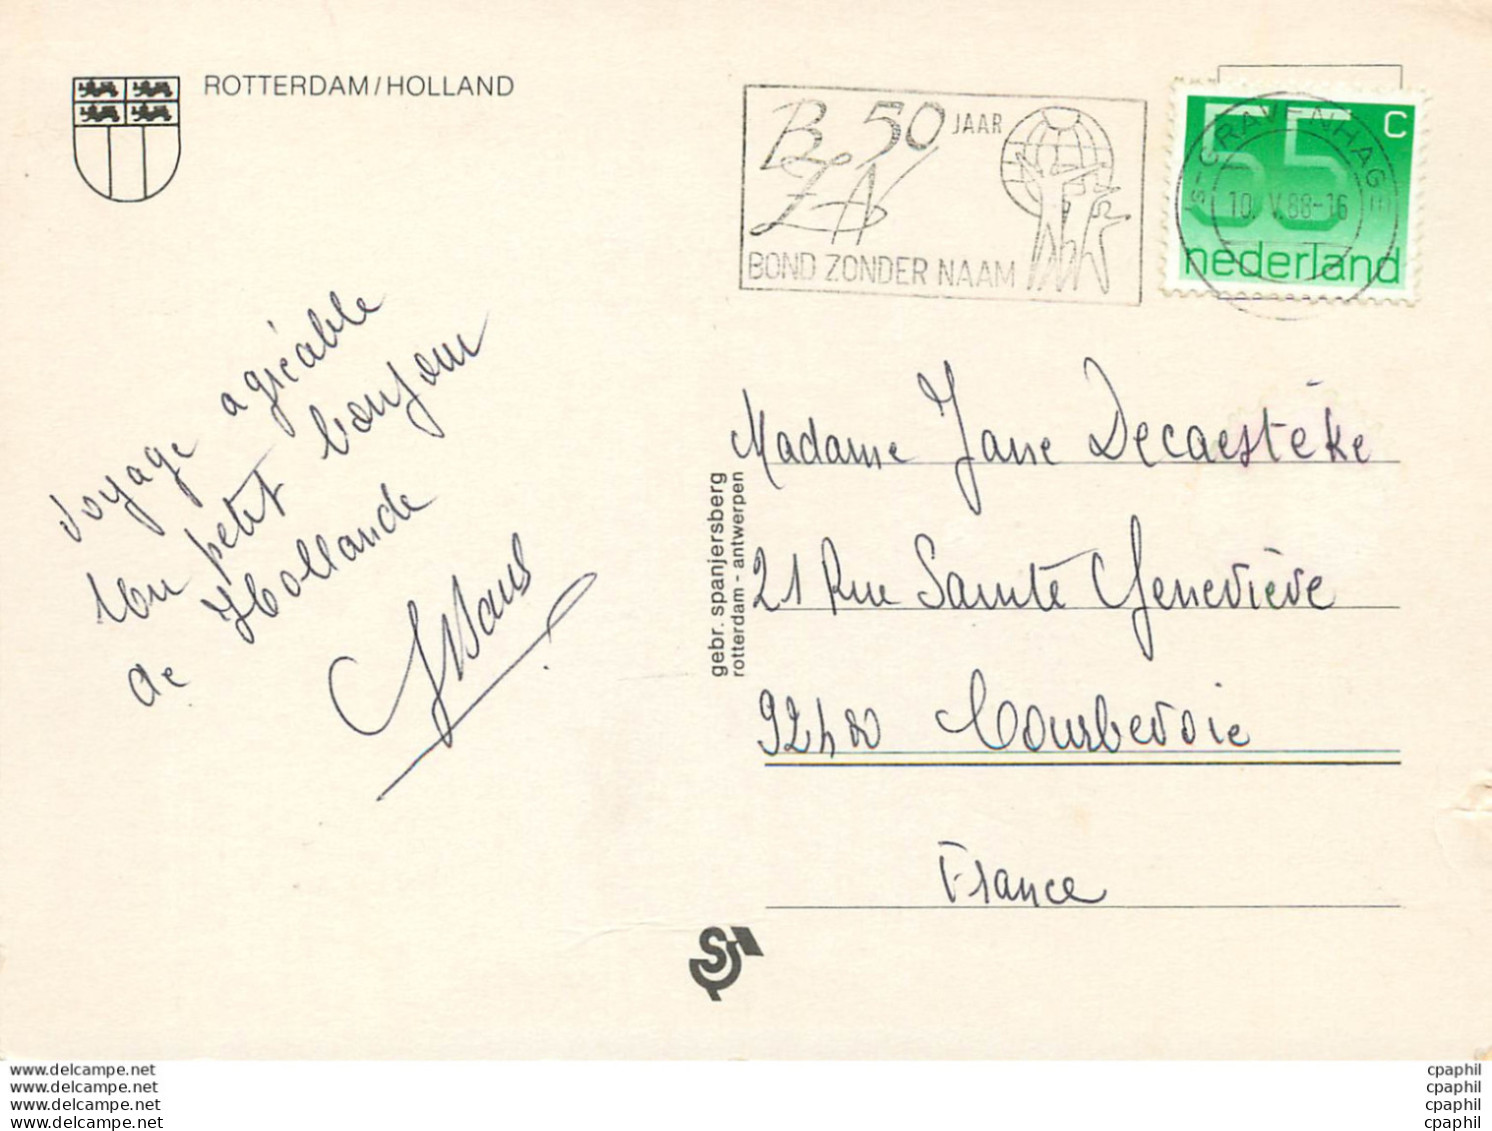 ROTTERDAM/HOLLAND
BZN 50 JAAR
BOND ZONDER NAAM
55 C
nederland
's-GRAVENHAGE
10.V.88-16
Voyage agréable
Un petit bonjour
de Hollande
gebr. spanjersberg
rotterdam - antwerpen
Madame Jane Decaestèke
21 Rue Sainte Geneviève
92400 Courbevoie
France
www.delcampe.net
www.delcampe.net
www.delcampe.net
www.delcampe.net
cpaphil
cpaphil
cpaphil
cpaphil